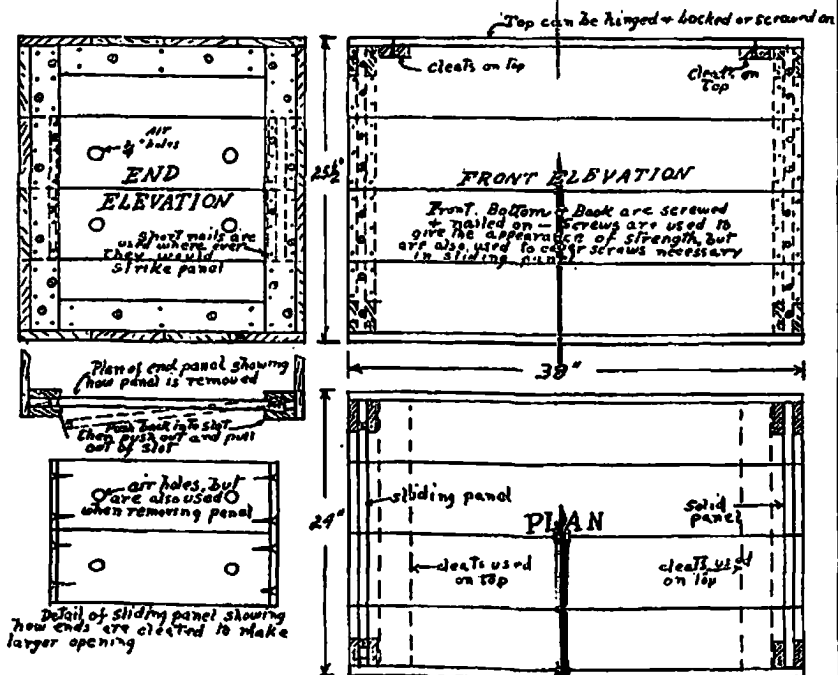 Top can be hinged + locked or screwed on
cleats on top
cleats on
Top
Air
3/4" holes
END
ELEVATION
Short nails are
used where ever
they would
strike panel
25 1/2"
FRONT ELEVATION
Front, Bottom + Back are screwed
+ nailed on - Screws are used to
give the appearance of strength, but
are also used to cover screws necessary
in sliding panel
Plan of end panel showing
how panel is removed
Push back into slot
then push out and pull
out of slot
38"
air holes, but
are also used
when removing panel
Detail of sliding panel showing
how ends are cleated to make
larger opening
24"
sliding panel
Solid
panel
PLAN
cleats used
on top
cleats used
on top